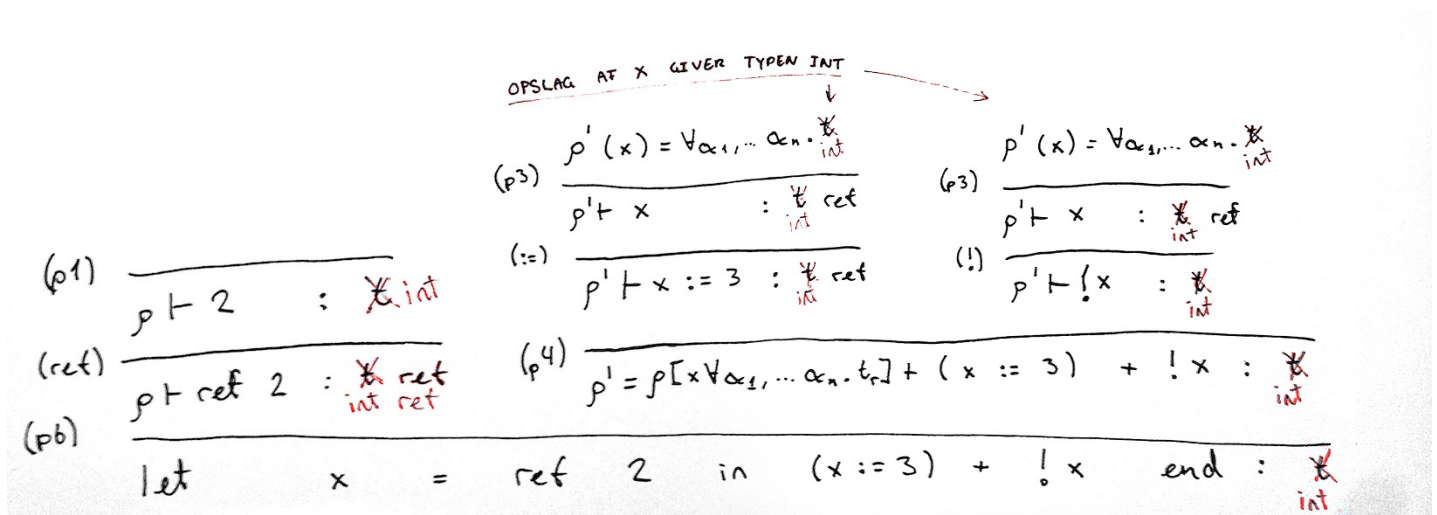 OPSLAG AF X GIVER TYPEN INT
(p3) ρ'(x) = ∀α1,... αn. t int
ρ' ⊢ x : t ref int
(p3) ρ'(x) = ∀α1,... αn. t int
ρ' ⊢ x : t ref int
(:=) ρ' ⊢ x := 3 : t ref int
(!) ρ' ⊢ !x : t int
(p1) ρ ⊢ 2 : t int
(ref) ρ ⊢ ref 2 : t ref int ref
(p4) ρ' = ρ[x∀α1,... αn. tr] + (x := 3) + !x : t int
(p6) let x = ref 2 in (x := 3) + !x end : t int